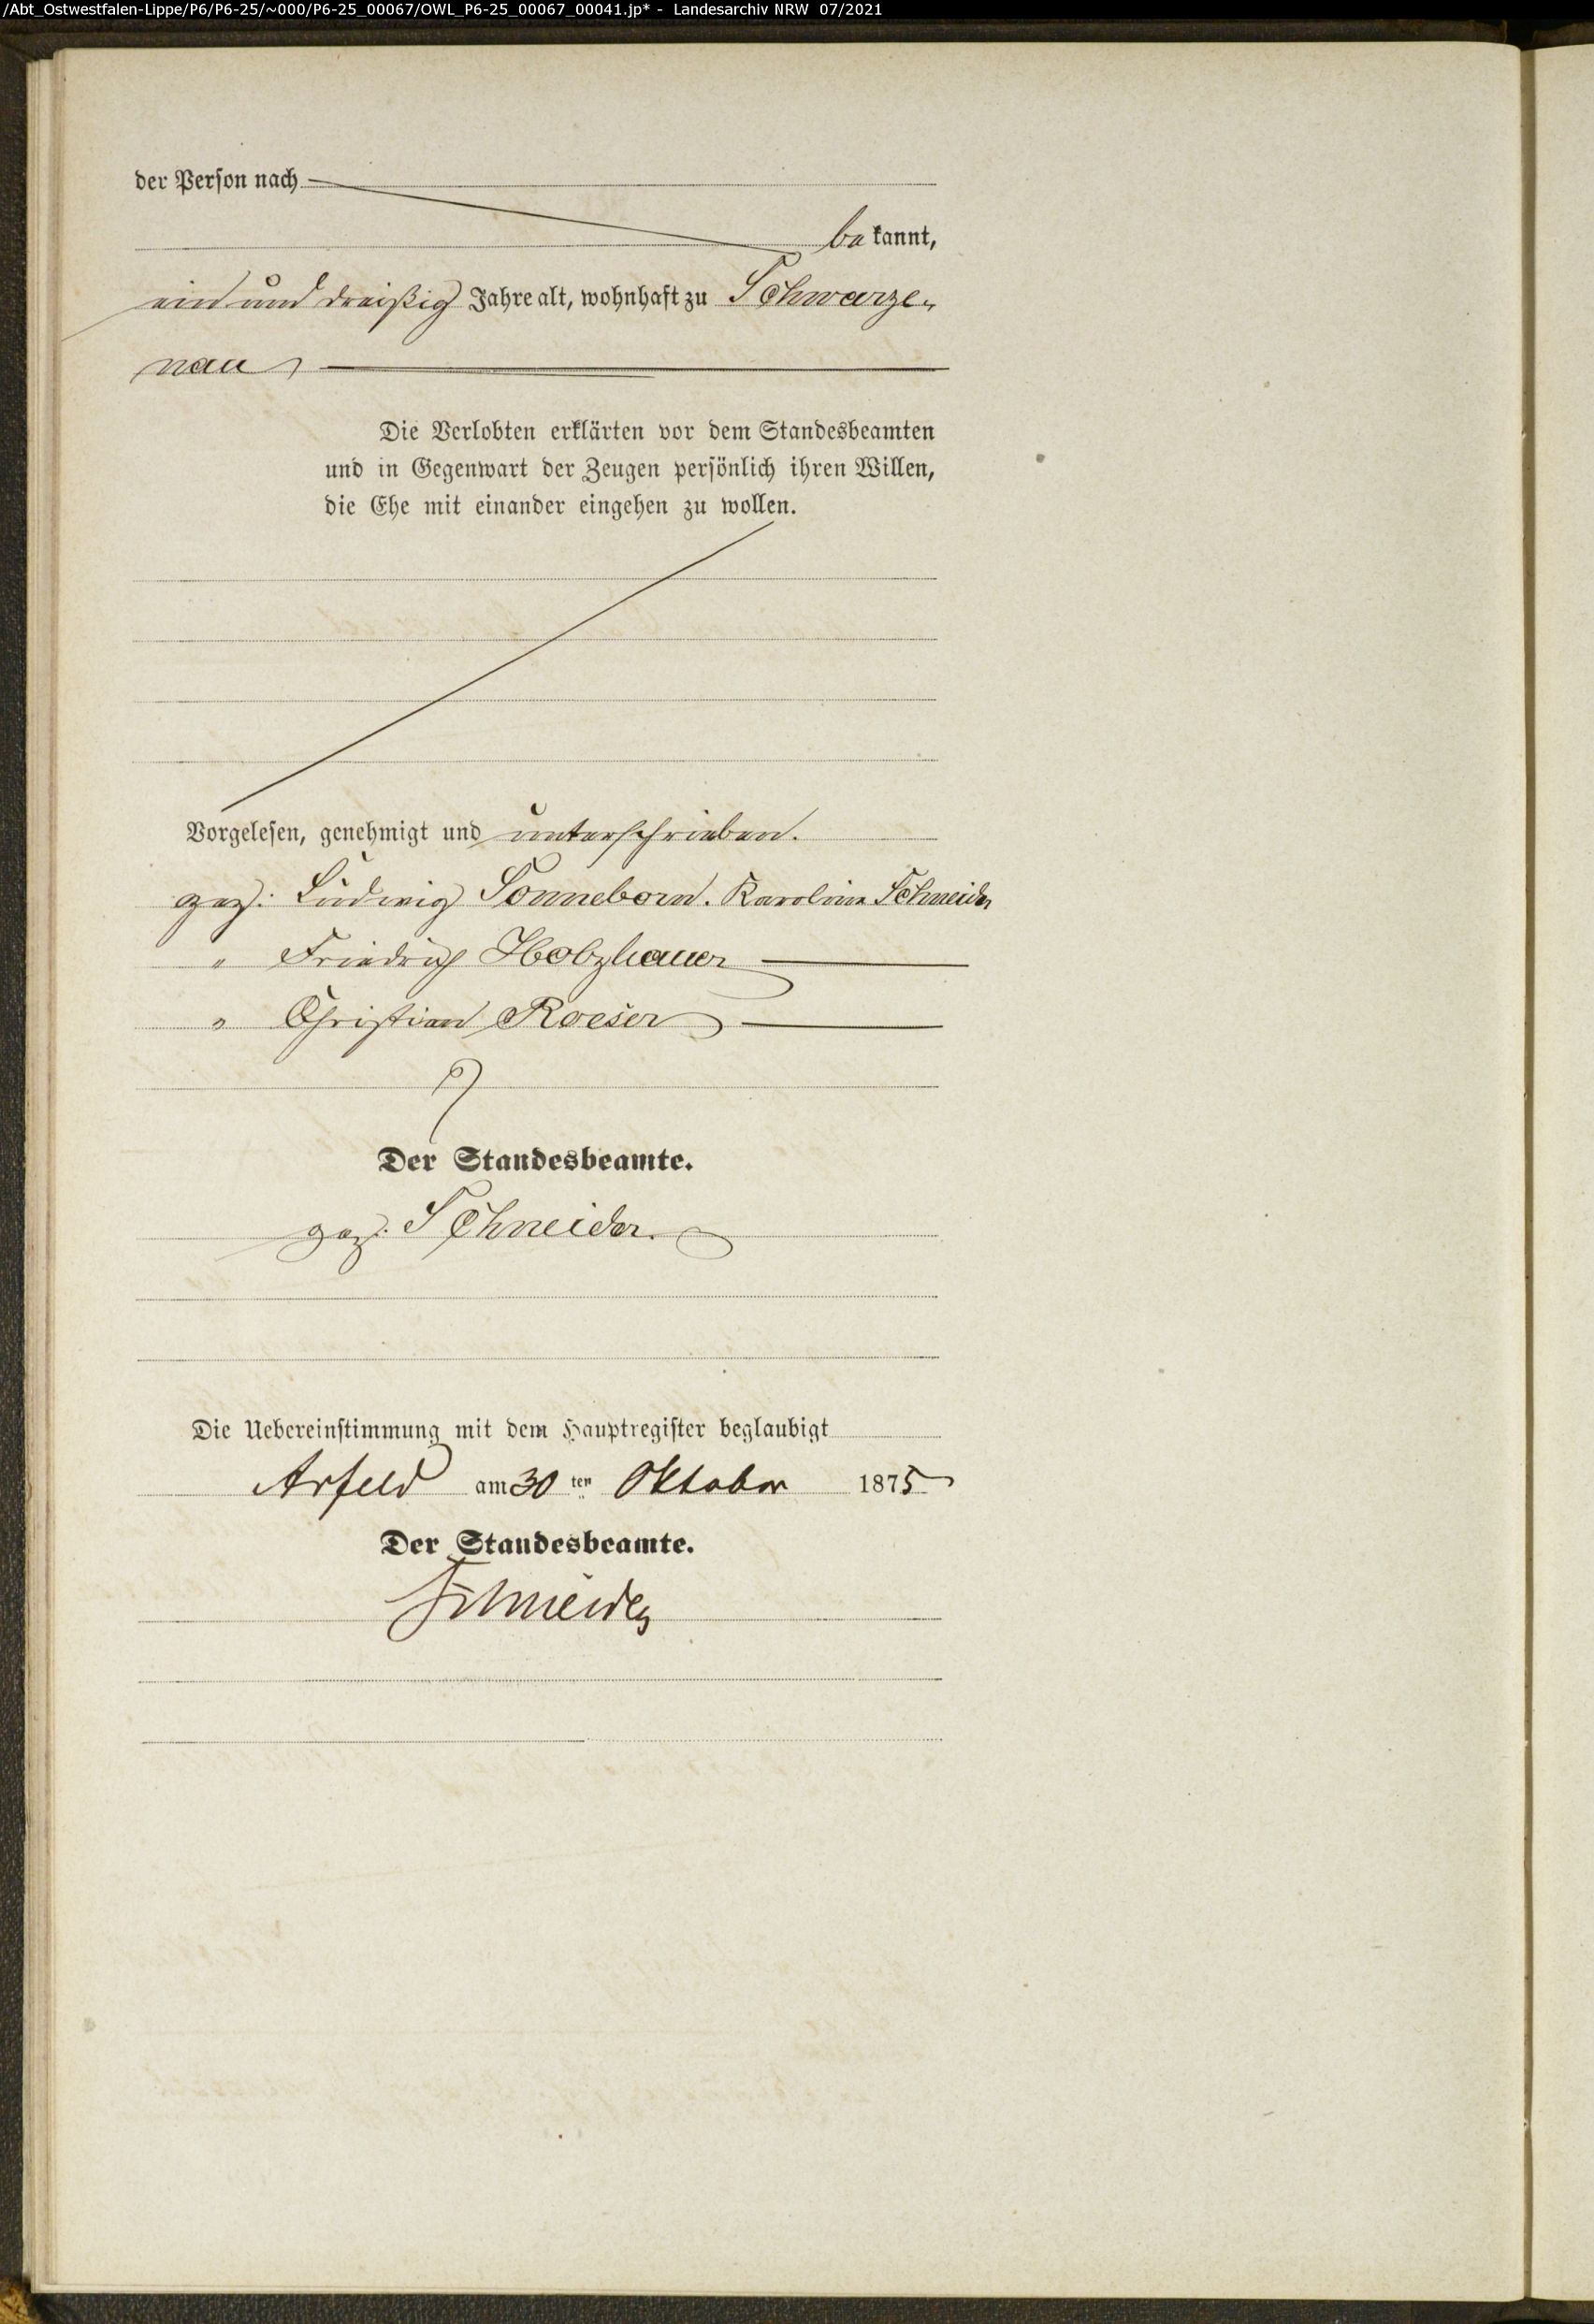 /Abt_Ostwestfalen-Lippe/P6/P6-25/~000/P6-25_00067/OWL_P6-25_00067_00041.jp* - Landesarchiv NRW 07/2021
der Person nach
bekannt,
ein und dreißig Jahre alt, wohnhaft zu Schwarze-
nau,
Die Verlobten erklärten vor dem Standesbeamten
und in Gegenwart der Zeugen persönlich ihren Willen,
die Ehe mit einander eingehen zu wollen.
Vorgelesen, genehmigt und unterschrieben.
gez: Ludwig Sonneborn. Karoline Schneider
" Friedrich Holzhauer
" Christian Roeser
Der Standesbeamte.
gez: Schneider.
Die Uebereinstimmung mit dem Hauptregister beglaubigt
Arfeld am 30 ten Oktober 1875
Der Standesbeamte.
Schneider